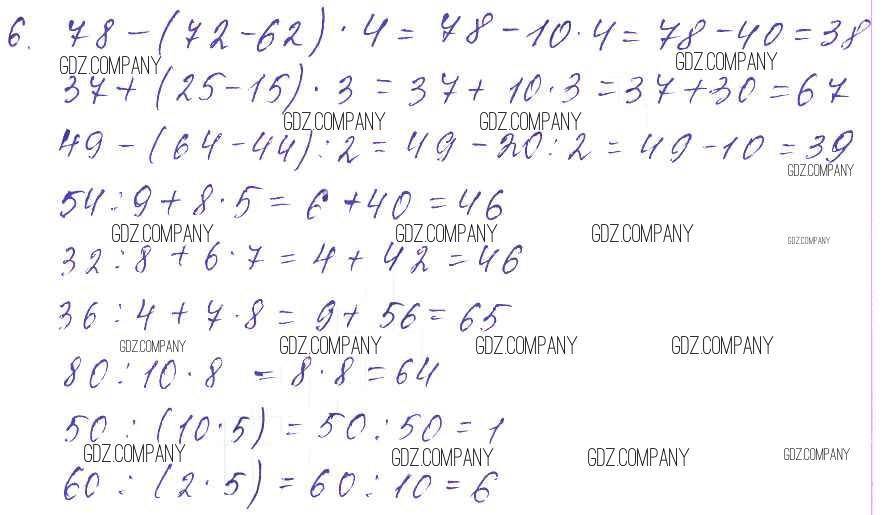 6. 78 - (72 - 62) · 4 = 78 - 10 · 4 = 78 - 40 = 38
GDZ.COMPANY GDZ.COMPANY
37 + (25 - 15) · 3 = 37 + 10 · 3 = 37 + 30 = 67
GDZ.COMPANY GDZ.COMPANY
49 - (64 - 44) : 2 = 49 - 20 : 2 = 49 - 10 = 39
GDZ.COMPANY
54 : 9 + 8 · 5 = 6 + 40 = 46
GDZ.COMPANY GDZ.COMPANY GDZ.COMPANY GDZ.COMPANY
32 : 8 + 6 · 7 = 4 + 42 = 46
36 : 4 + 7 · 8 = 9 + 56 = 65
GDZ.COMPANY GDZ.COMPANY GDZ.COMPANY GDZ.COMPANY
80 : 10 · 8 = 8 · 8 = 64
50 : (10 · 5) = 50 : 50 = 1
GDZ.COMPANY GDZ.COMPANY GDZ.COMPANY GDZ.COMPANY
60 : (2 · 5) = 60 : 10 = 6